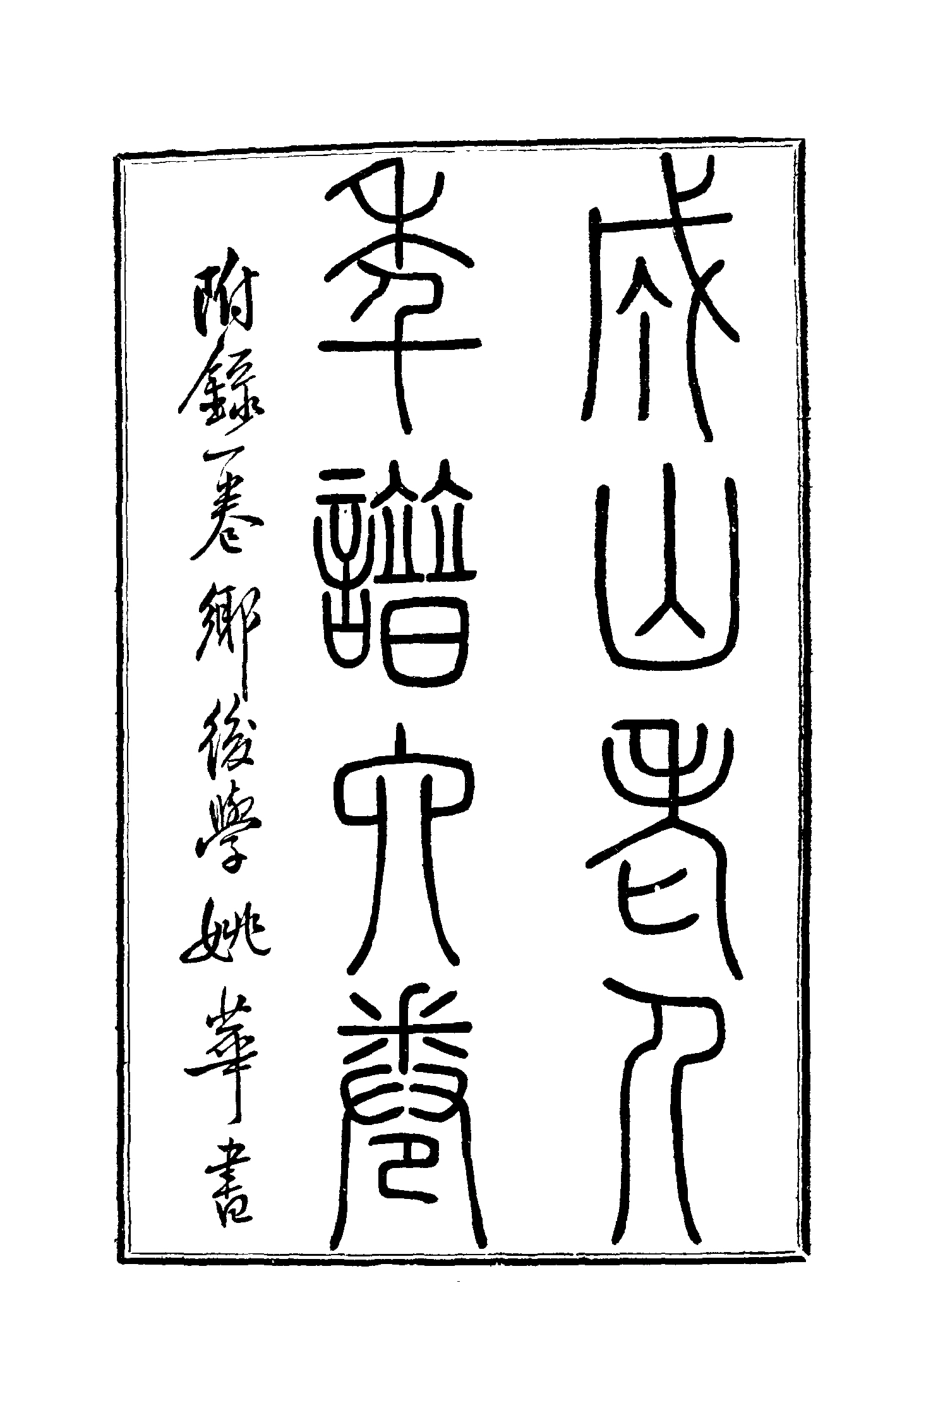 成山老人
年譜六卷
附錄一卷鄉後學姚華書